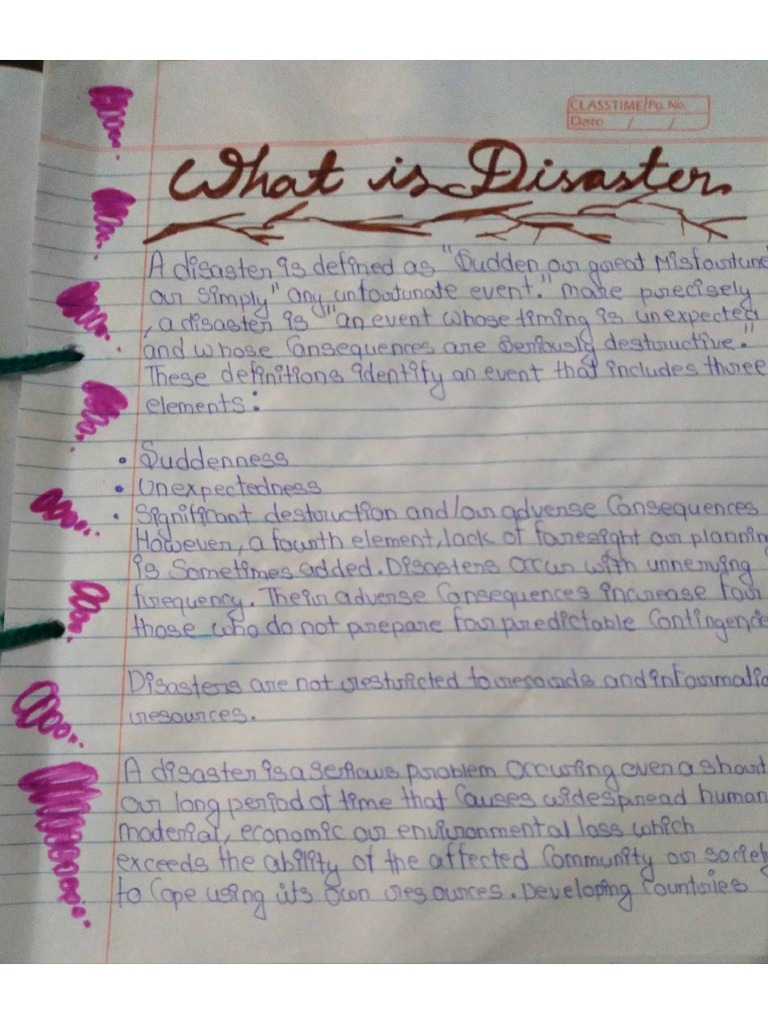 CLASSTIME Pg. No.
Date / /
What is Disaster
A disaster is defined as "Sudden or great Misfortune
or simply" any unfortunate event." more precisely
, a disaster is "an event whose timing is unexpected
and whose Consequences are Seriously destructive."
These definitions identify an event that includes three
elements:
• Suddenness
• Unexpectedness
• Significant destruction and/or adverse Consequences
However, a fourth element, lack of foresight or planning
is Sometimes added. Disasters Occur with unnerving
frequency. Their adverse Consequences increase for
those who do not prepare for predictable Contingencies
Disasters are not restricted to records and informatio
resources.
A disaster is a serious problem Occuring over a short
or long period of time that Causes widespread human
material, economic or environmental loss which
exceeds the ability of the affected Community or society
to Cope using its own resources. Developing Countries